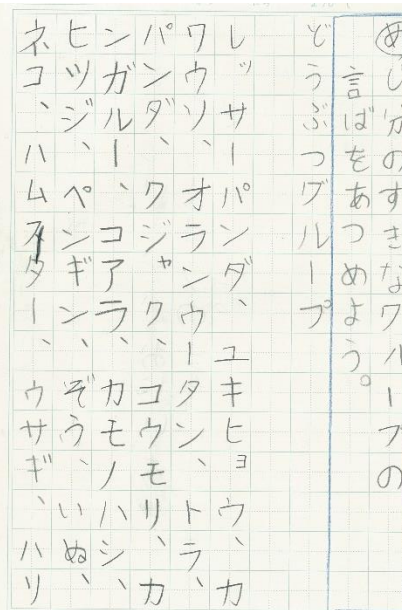 めじ分のすきなグループの
言ばをあつめよう。
どうぶつグループ
レッサーパンダ、ユキヒョウ、カ
ワウソ、オランウータン、トラ、
パンダ、クジャク、コウモリ、カ
ンガルー、コアラ、カモノハシ、
ヒツジ、ペンギン、ぞう、いぬ、
ネコ、ハムスター、ウサギ、ハリ